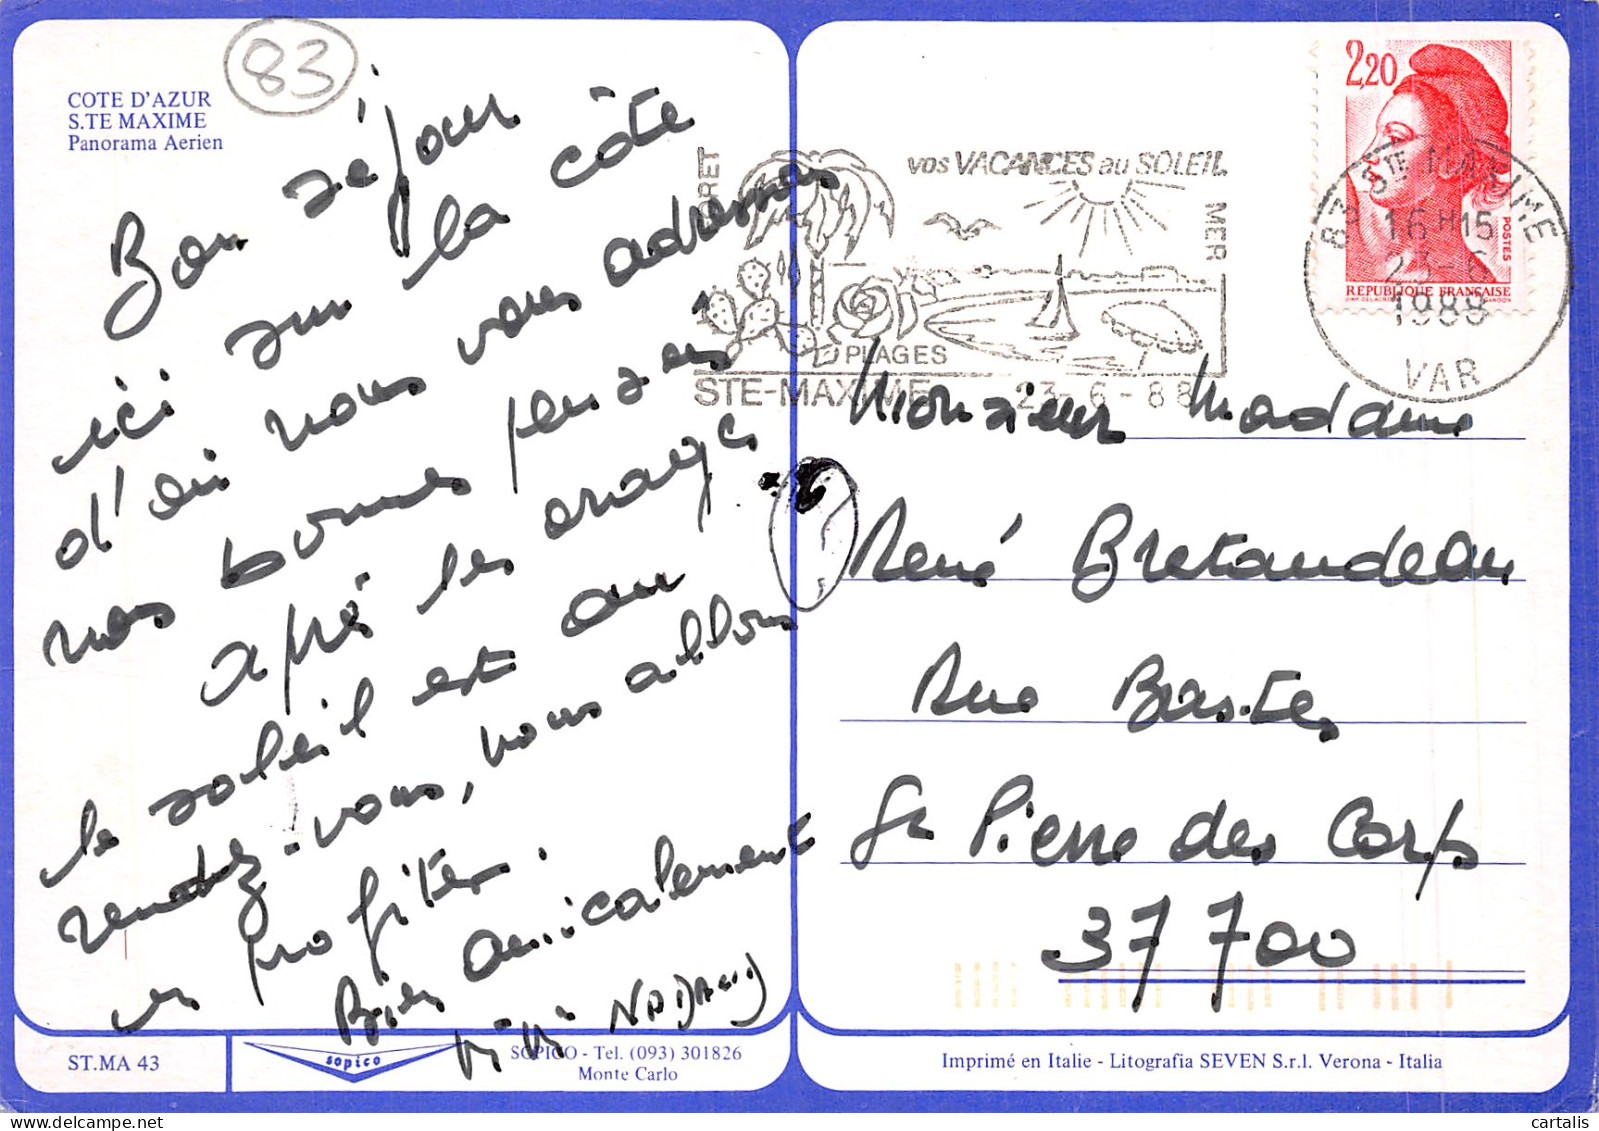 83
COTE D'AZUR
S.TE MAXIME
Panorama Aerien
Bon séjour
ici sur la côte
d'où nous vous adressons
nos bonnes pensées
après les orages
le soleil est au
rendez-vous, nous allons
en profiter.
Bien amicalement
Mimi NADAUD
ST.MA 43
sopico
SOPICO - Tel. (093) 301826
Monte Carlo
vos VACANCES au SOLEIL
FORET
MER
PLAGES
STE-MAXIME 23-6-88
2,20
POSTES
REPUBLIQUE FRANÇAISE
83 STE MAXIME
16H15
23-6
1988
VAR
Monsieur Madame
René Bretaudeau
Rue Bastes
St Pierre des Corps
37700
Imprimé en Italie - Litografia SEVEN S.r.l. Verona - Italia
cartalis